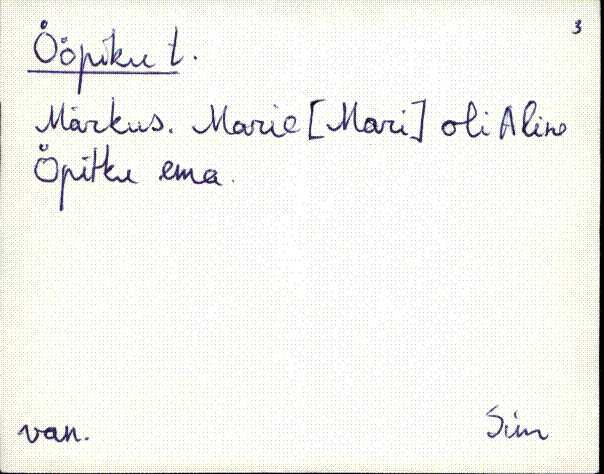 3
Ööpiku t.
Märkus. Marie [Mari] oli Aline
Öpitku ema.
van. Sim